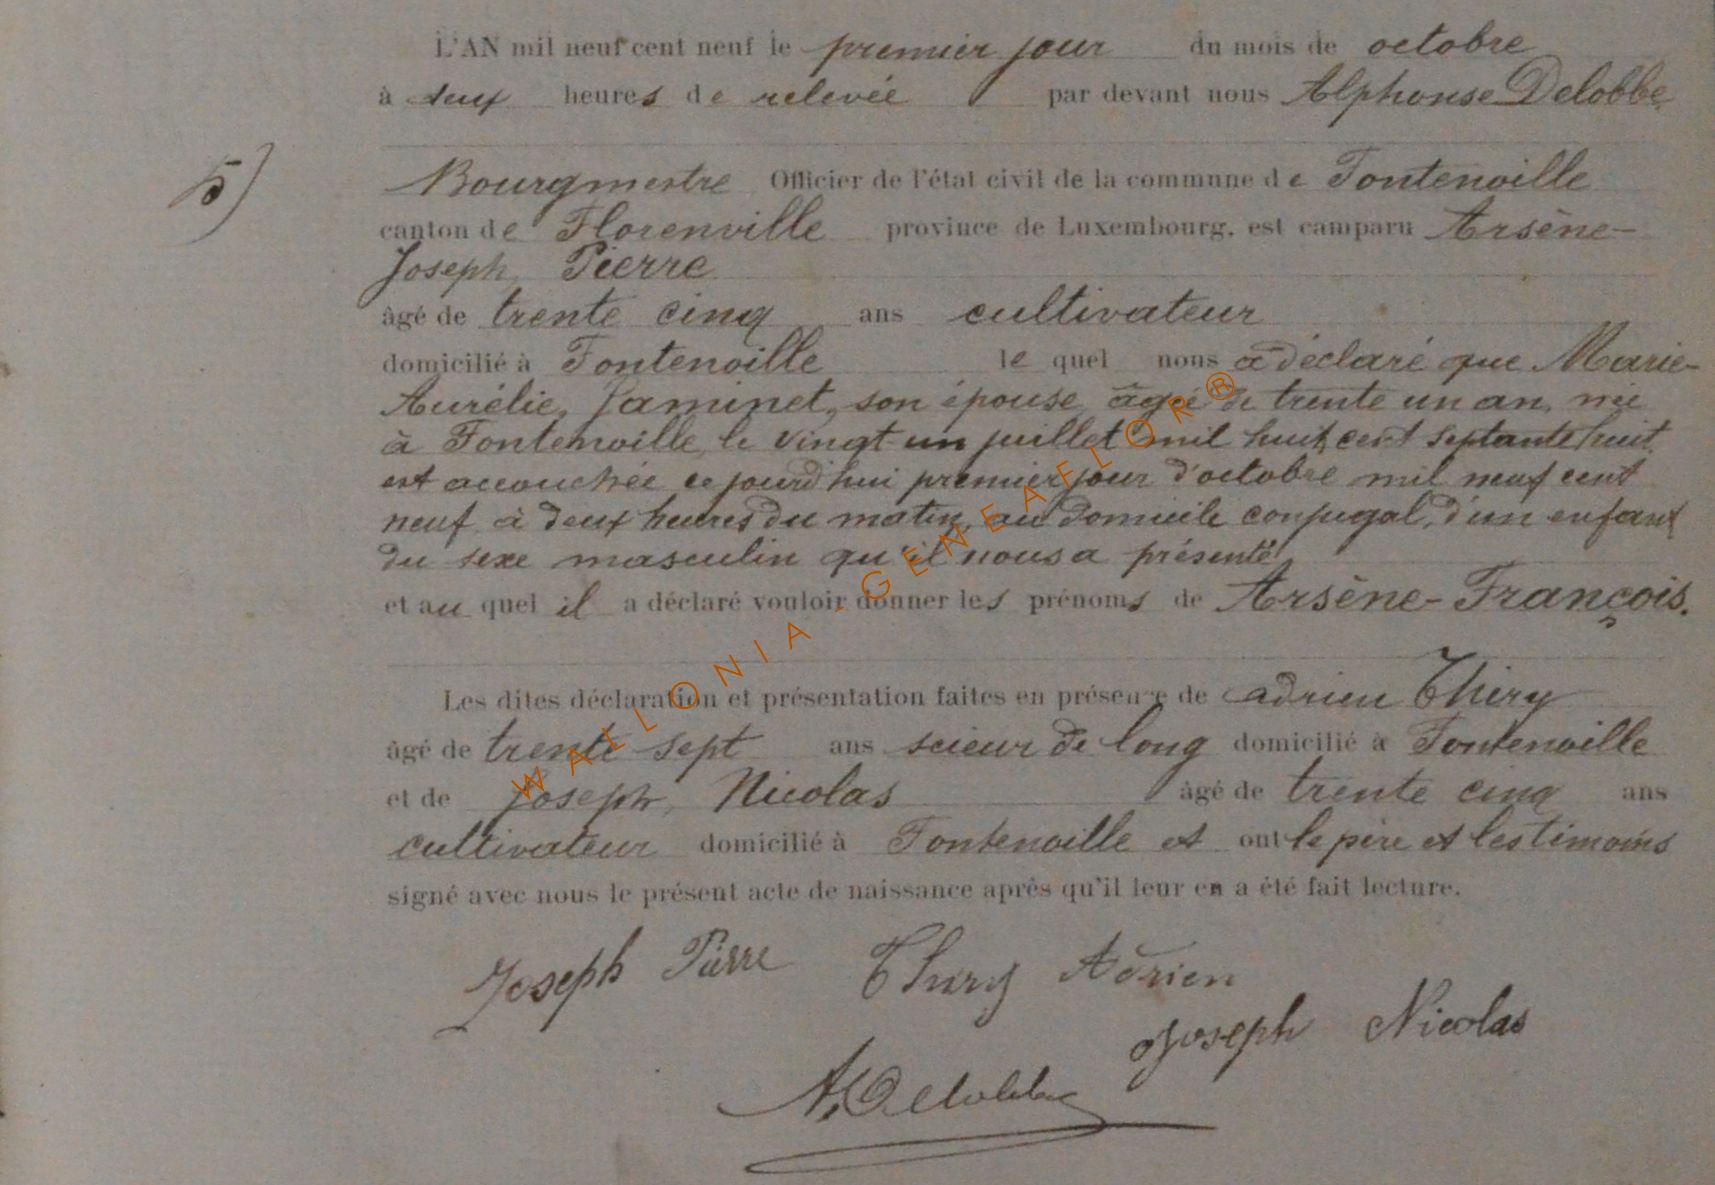 L'AN mil neuf cent neuf le premier jour du mois de octobre
à deux heures de relevée par devant nous Alphonse Delobbe
5)
Bourgmestre Officier de l'état civil de la commune de Fontenoille
canton de Florenville province de Luxembourg, est comparu Arsène-
Joseph Pierre
âgé de trente cinq ans cultivateur
domicilié à Fontenoille le quel nous a déclaré que Marie-
Aurélie Jaminet, son épouse âgée de trente un an, née
à Fontenoille le vingt-un juillet mil huit cent septante huit
est accouchée ce jourd'hui premier jour d'octobre mil neuf cent
neuf à deux heures du matin, au domicile conjugal, d'un enfant
du sexe masculin qu'il nous a présenté
et au quel il a déclaré vouloir donner les prénoms de Arsène-François.
Les dites déclaration et présentation faites en présence de adrien Thiry
âgé de trente sept ans scieur de long domicilié à Fontenoille
et de Joseph Nicolas âgé de trente cinq ans
cultivateur domicilié à Fontenoille et ont le père et les témoins
signé avec nous le présent acte de naissance après qu'il leur en a été fait lecture.
Joseph Pierre Thiry Adrien
Joseph Nicolas
A. Delobbe
WALLONIA-GENEAFLOR®